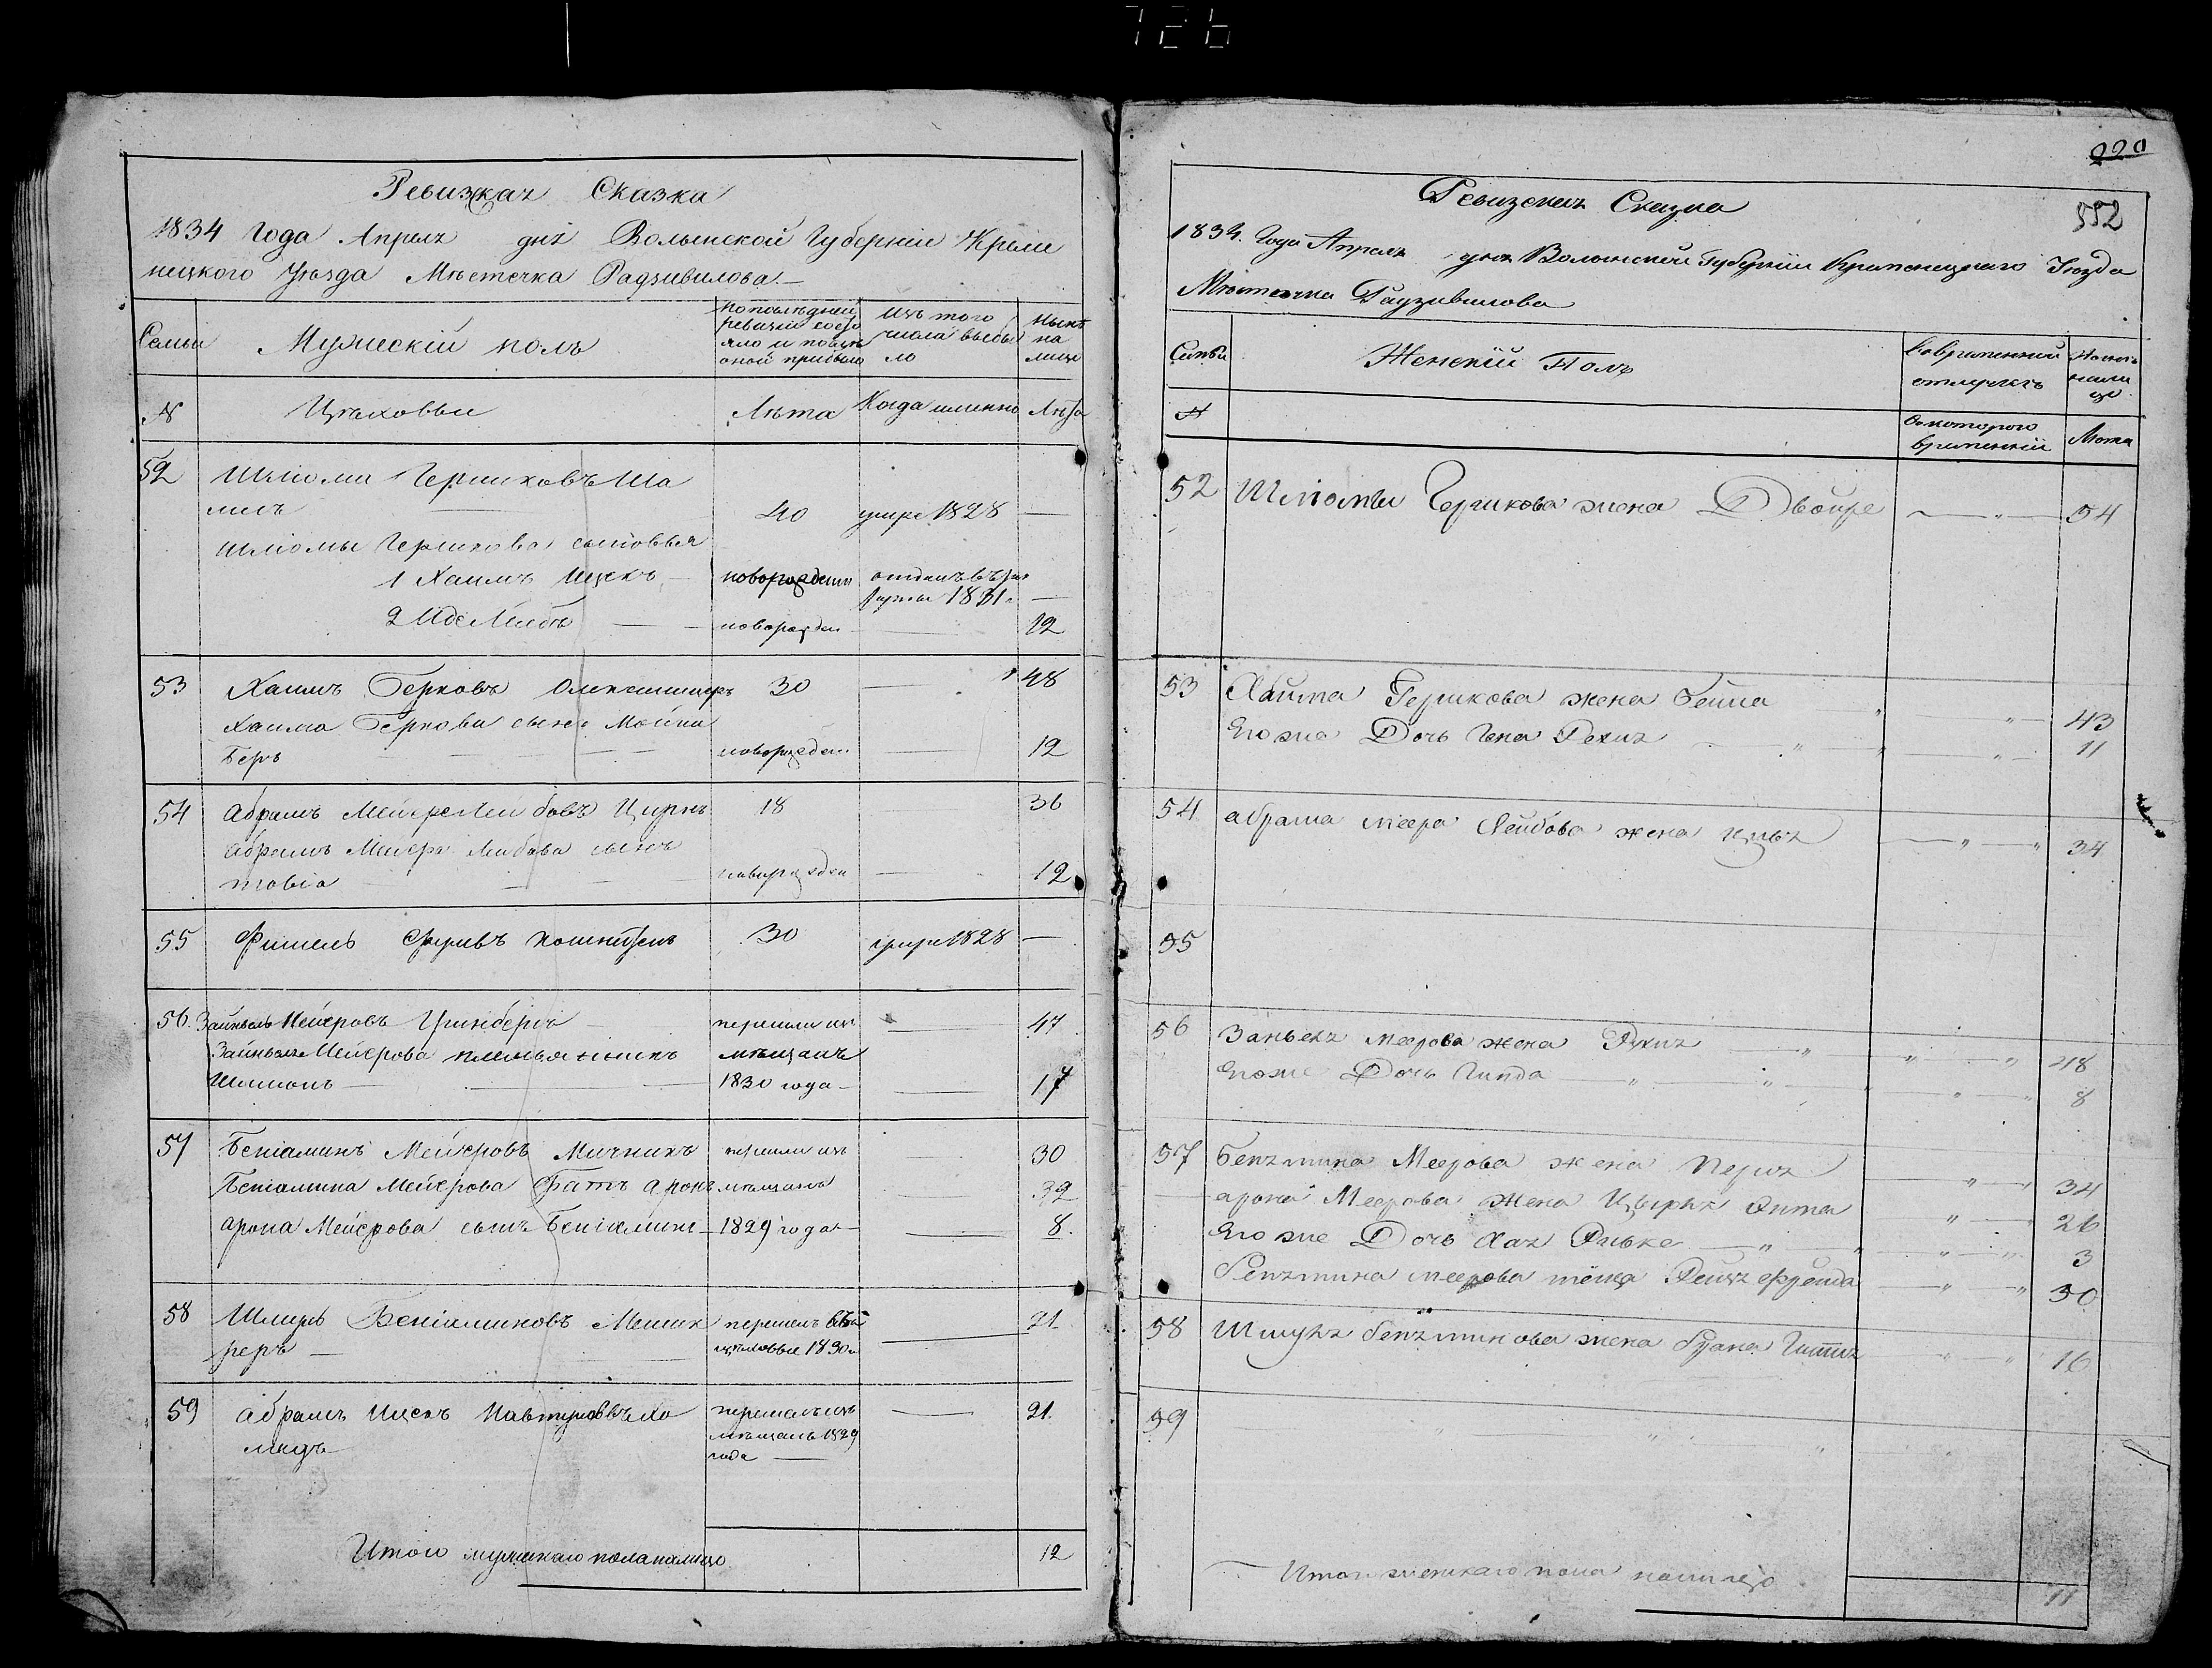 220
552
Ревизская Сказка
1834 Года Апреля дня Волынской Губерніи Креме
нецкого Уезда Местечка Радзивилова
Семьи
Мужескій полъ
По последней
ревизіи состо
яло и после
оной прибыло
Изъ того
числа выбы
ло
Ныне
на
лице
№
Цеховые
Лета
Когда именно
Лета
52
Шліома Гершковъ Ша
милъ
40 умре 1828 —
Шліомы Гершкова сыновья
1 Хаимъ Ицекъ новорожденъ отданъ въ
рекруты 1831 —
2 Иде Лейбъ — новорожден — 12
53 Хаимъ Берковъ 30 — 48
Хаима Беркова сынъ
Беръ новорожден — 12
54 Абрамъ Мейере Лейбовъ 18 — 36
Абрама Мейера Лейбова сынъ
товіа новорожден — 12
55 Фишель 30 умре 1828 —
56 Зайнвель Мейеровъ Гринбергъ перешли изъ — 47
Зайнвеля Мейерова племьянникъ мещанъ
Шимонъ — 1830 года — 17
57 Беніаминъ Мейеровъ Мичникъ перешли изъ — 30
Беніамина Мейерова братъ аронъ мещанъ 32
арона Мейерова сынъ Беніаминъ — 1829 года — 8
58 Шмуль Беніаминовъ перешелъ въ 21
реръ — цеховые 1830
59 Абрамъ Ицекъ перешелъ изъ — 21
мещанъ 1829
года —
Итого мужескаго пола налицо 12
Ревизская Сказка
1834. Года Апреля дня Волынской Губерніи Кременецкаго Уезда
Местечка Радзивилова
Семьи
Женскій Полъ
Во временной
отлучке
Ныне
нали
це
№
Съ которого
времени
Лета
52 Шліомы Гершкова жена Двойре — 54
53 Хаима Гершкова жена Бейла 43
Его же Дочь Гена Рехля 11
54 абрама меера Лейбова жена 34
55
56 меерова жена 48
Его же Дочь Гинда 8
57 Бенямина Меерова жена Перля 34
арона Меерова жена Цырля Гитта 26
Его же Дочь Хая Ривке 3
Бенямина меерова тёща Фрейда 50
58 Шмуля беняминова жена Гитля 16
59
Итого женскаго пола налицо 11